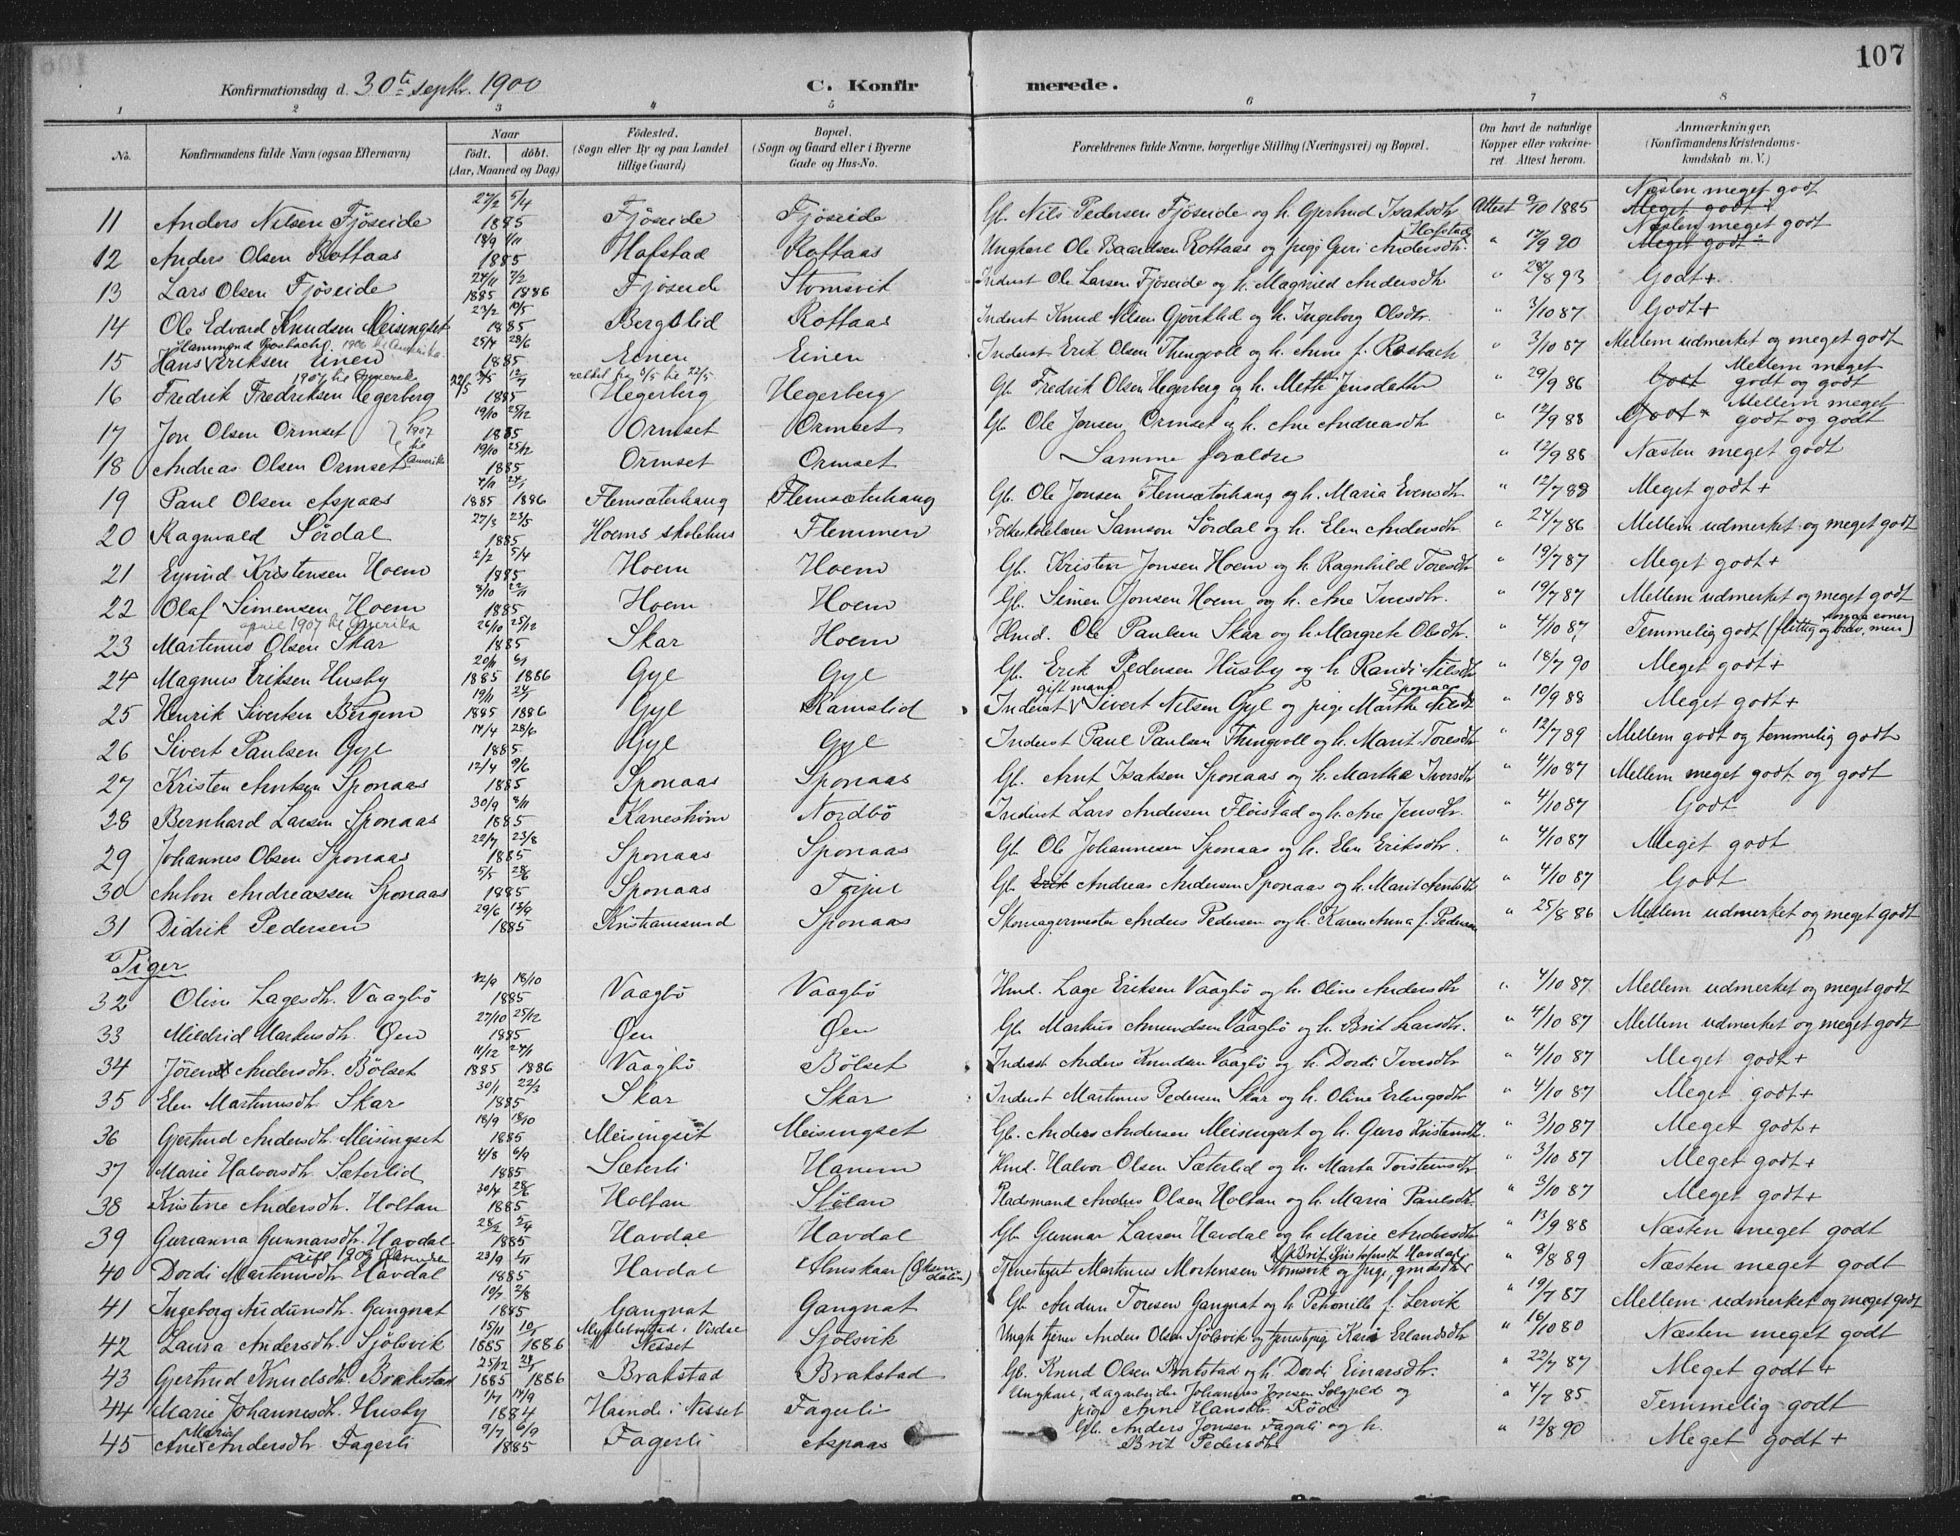 107
Konfirmationsdag d. 30te septbr. 1900 C. Konfirmerede.
1 2 3 4 5 6 7 8
No. Konfirmandens fulde Navn (ogsaa Efternavn) Naar født. døbt. (Aar, Maaned og Dag) Fødested. (Sogn eller By og paa Landet tillige Gaard) Bopæl. (Sogn og Gaard eller i Byerne Gade og Hus-No. Forældrenes fulde Navne, borgerlige Stilling (Næringsvei) og Bopæl. Om havt de naturlige Kopper eller vaccineret. Attest herom. Anmærkninger. (Konfirmandens Kristendomskundskab m. V.)
11 Anders Nilsen Fjøseide 27/2 5/4 1885 Fjøseide Fjøseide Gb. Nils Pedersen Fjøseide og h. Gjertrud Isaksdtr Attest 9/10 1885 Næsten meget godt Meget godt
12 Anders Olsen Rottaas 18/9 1/11 1885 Hafstad Rottaas Ungkarl Ole Baardsen Rottaas og pige Guri Andersdtr. Hafstad " 12/9 90 Næsten meget godt Meget godt
13 Lars Olsen Fjøseide 24/11 1885 7/2 1886 Fjøseide Stomsvik Inderst Ole Larsen Fjøseide og h. Magnild Andersdtr " 28/8 93 Godt+
14 Ole Edvard Knudsen Meisingset 23/2 10/5 1885 Bergslid Rottaas Inderst Knud Nilsen Gjøviklid og h. Ingeborg Olsdtr. " 3/10 87 Godt+
15 Hans Hammond Rosbach Eriksen Einen 1906 til Amerika 25/4 28/6 1885 Einen Einen Inderst Erik Olsen Thingvoll og h. Anne f. Rosbach " 3/10 87 Mellem udmerket og meget godt
16 Fredrik Fredriksen Hegerberg 1907 til Amerika 22/5 3/5 12/7 1885 rettet fra 3/5 til 22/5 Hegerberg Hegerberg Gb. Fredrik Olsen Hegerberg og h. Mette Jensdatter " 29/9 86 Godt Mellem meget godt og godt
17 Jon Olsen Ormset 1907 til Amerika 19/10 25/12 1885 Ormset Ormset Gb. Ole Jonsen Ormset og h. Ane Andreasdtr " 12/9 88 Godt+ Mellem meget godt og godt
18 Andreas Olsen Ormset 19/10 25/12 1885 Ormset Ormset Samme forældre " 12/9 88 Næsten meget godt
19 Paul Olsen Aspaas 4/11 1885 24/1 1886 Flemsæterhaug Flemsæterhaug Gb. Ole Jonsen Flemsæterhaug og h. Maria Evensdtr " 12/7 88 Meget godt+
20 Ragnvald Sørdal 27/3 23/5 1885 Hoems skolehus Flemmen Folkeskolelærer Samson Sørdal og h. Elen Andersdtr " 24/7 86 Mellem udmerket og meget godt
21 Eyvind Kristensen Hoem 2/2 5/4 1885 Hoem Hoem Gb. Kristen Jonsen Hoem og h. Ragnhild Toresdtr " 19/7 87 Meget godt+
22 Olaf Simensen Hoem april 1907 til Amerika 8/10 22/11 1885 Hoem Hoem Gb. Simen Jonsen Hoem og h. Ane Iversdtr. " 19/7 87 Mellem udmerket og meget godt
23 Martinus Olsen Skar 26/10 25/12 1885 Skar Hoem Hmd. Ole Paulsen Skar og h. Margrete Olsdtr. " 4/10 87 Temmelig godt (flittig og brav, men smaa evner)
24 Magnus Eriksen Husby 20/11 1885 6/1 1886 Gyl Gyl Gb. Erik Pedersen Husby og h. Randi Nilsdtr " 18/7 90 Meget godt+
25 Henrik Sivertsen Bergem 19/11 1885 24/1 1886 Gyl Ramslid Inderst gift mand Sivert Nilsen Gyl og pige Marthe Nilsdtr Sponaas " 10/9 88 Meget godt+
26 Sivert Paulsen Gyl 14/4 28/6 1885 Gyl Gyl Inderst Paul Paulsen Thingvoll og h. Marit Toresdtr " 12/7 89 Mellem godt og temmelig godt
27 Kristen Arntsen Sponaas 12/4 9/6 1885 Sponaas Sponaas Gb. Arnt Isaksen Sponaas og h. Martha Iversdtr " 4/10 87 Mellem meget godt og godt
28 Bernhard Larsen Sponaas 30/9 8/11 1885 Kanestrøm Nordbø Inderst Lars Andersen Fløistad og h. Ane Jensdtr. " 4/10 87 Godt
29 Johannes Olsen Sponaas 22/7 23/8 1885 Sponaas Sponaas Gb. Ole Johannesen Sponaas og h. Elen Eriksdtr. " 4/10 87 Meget godt
30 Anton Andreassen Sponaas 5/5 28/6 1885 Sponaas Gb. Erik Andreas Andersen Sponaas og h. Marit Arntsdtr " 4/10 87 Godt
31 Didrik Pedersen 29/6 13/9 1885 Kristiansund Sponaas Skomagermester Anders Pedersen og h. Karen Anna f. Pedersen " 25/8 86 Mellem udmerket og meget godt
Piger
32 Oline Lagesdtr. Vaagbø 12/9 18/10 1885 Vaagbø Vaagbø Hmd. Lage Eriksen Vaagbø og h. Oline Andersdtr " 4/10 87 Mellem udmerket og meget godt
33 Mildrid Markusdtr. Øen 27/10 25/12 1885 Øen Øen Gb. Markus Amundsen Vaagbø og h. Brit Larsdtr. " 4/10 87 Mellem udmerket og meget godt
34 Jøren Andersdtr. Bølset 11/12 1885 24/1 1886 Vaagbø Bølset Inderst Anders Knudsen Vaagbø og h. Dordi Iversdtr " 4/10 87 Meget godt+
35 Elen Martinusdtr. Skar 30/1 22/3 1885 Skar Skar Inderst Martinus Pedersen Skar og h. Oline Erlingsdtr " 4/10 87 Meget godt+
36 Gjertrud Andersdtr. Meisingset 18/9 18/10 1885 Meisingset Meisingset Gb. Anders Andersen Meisingset og h. Guro Kristensdtr. " 3/10 87 Meget godt+
37 Marie Halvorsdtr. Sæterlid 4/8 6/9 1885 Sæterli Hanem Hmd. Halvor Olsen Sæterlid og h. Marta Torstensdtr " 3/10 87 Meget godt+
38 Kristine Andersdtr. Holtan 30/4 28/6 1885 Holtan Stølan Pladsmand Anders Olsen Holtan og h. Maria Paulsdtr " 3/10 87 Meget godt+
39 Gurianna Gunnarsdtr. Havdal 28/2 5/4 1885 Havdal Havdal Gb. Gunnar Larsen Havdal og h. Marie Andersdtr " 13/9 88 Næsten meget godt
40 Dordi Martinusdtr Havdal 23/9 1/11 1885 Havdal Almskaar (Øksendalen) Tjenestegut Martinus Mortensen Stomsvik og pige, gmdsdtr Brit Kristofersdtr Havdal " 8/8 89 Næsten meget godt
41 Ingeborg Audunsdtr. Gangnat 19/7 2/8 1885 Gangnat Gangnat Gb. Audun Toresen Gangnat og h. Petronille f. Lervik " 19/7 87 Mellem udmerket og meget godt
42 Laura Andersdtr. Sjølsvik 15/11 1885 1886 Nesset Sjølsvik Ungk. tjener Anders Olsen Sjølsvik og tjenestepig Kari Erlandsdtr " 16/10 80 Næsten meget godt
43 Gjertrud Knudsdtr. Brakstad 25/12 1885 1886 Brakstad Brakstad Gb. Knud Olsen Brakstad og h. Dordi Einarsdtr. " 22/7 87 Meget godt+
44 Marie Johannesdtr. Husby 1/7 14/9 1884 i Nesset Fagerli Ungkarl, dagarbeider Johannes Jonsen Solgjeld og pige Anne Hansdtr. Rød " 4/7 85 Temmelig godt
45 Ane Maria Andersdtr. Fagerli 9/7 6/9 1885 Fagerli Aspaas Gb. Anders Jonsen Fagerli og h. Brit Pedersdtr " 12/8 90 Meget godt+